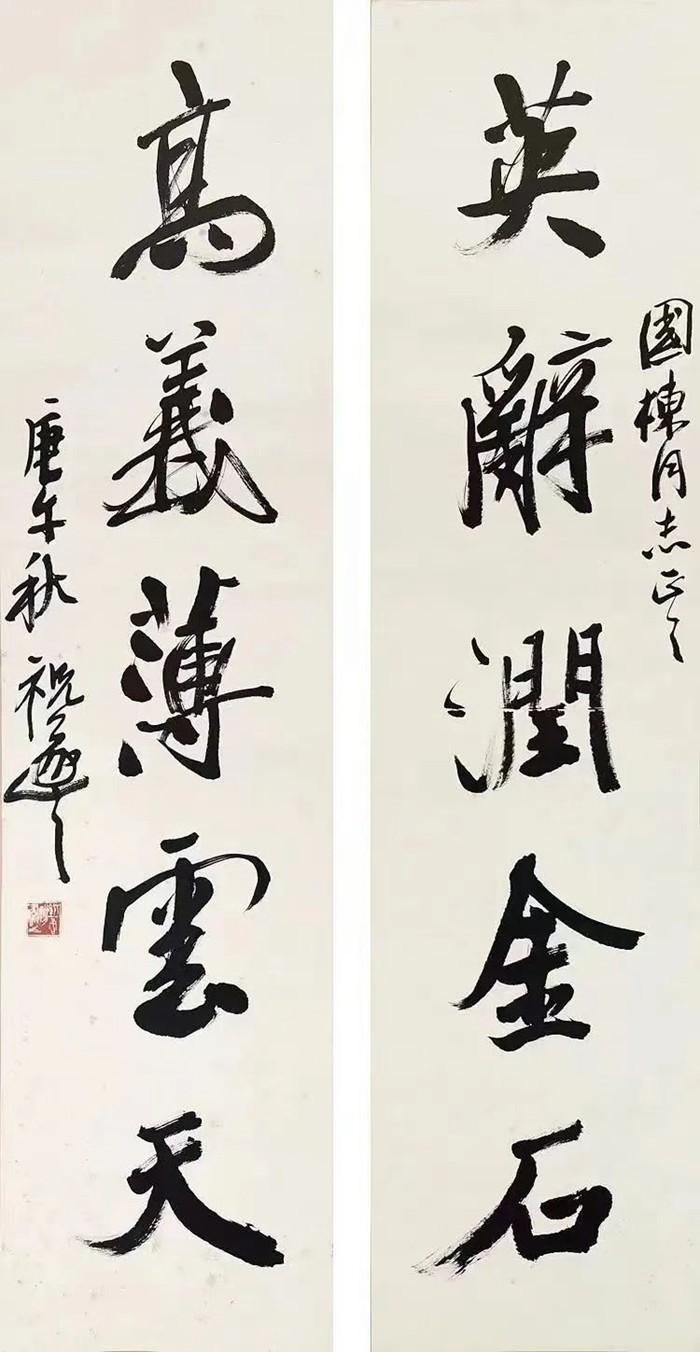 國棟同志正之
英辭潤金石
高義薄雲天
庚午秋 祝遂之